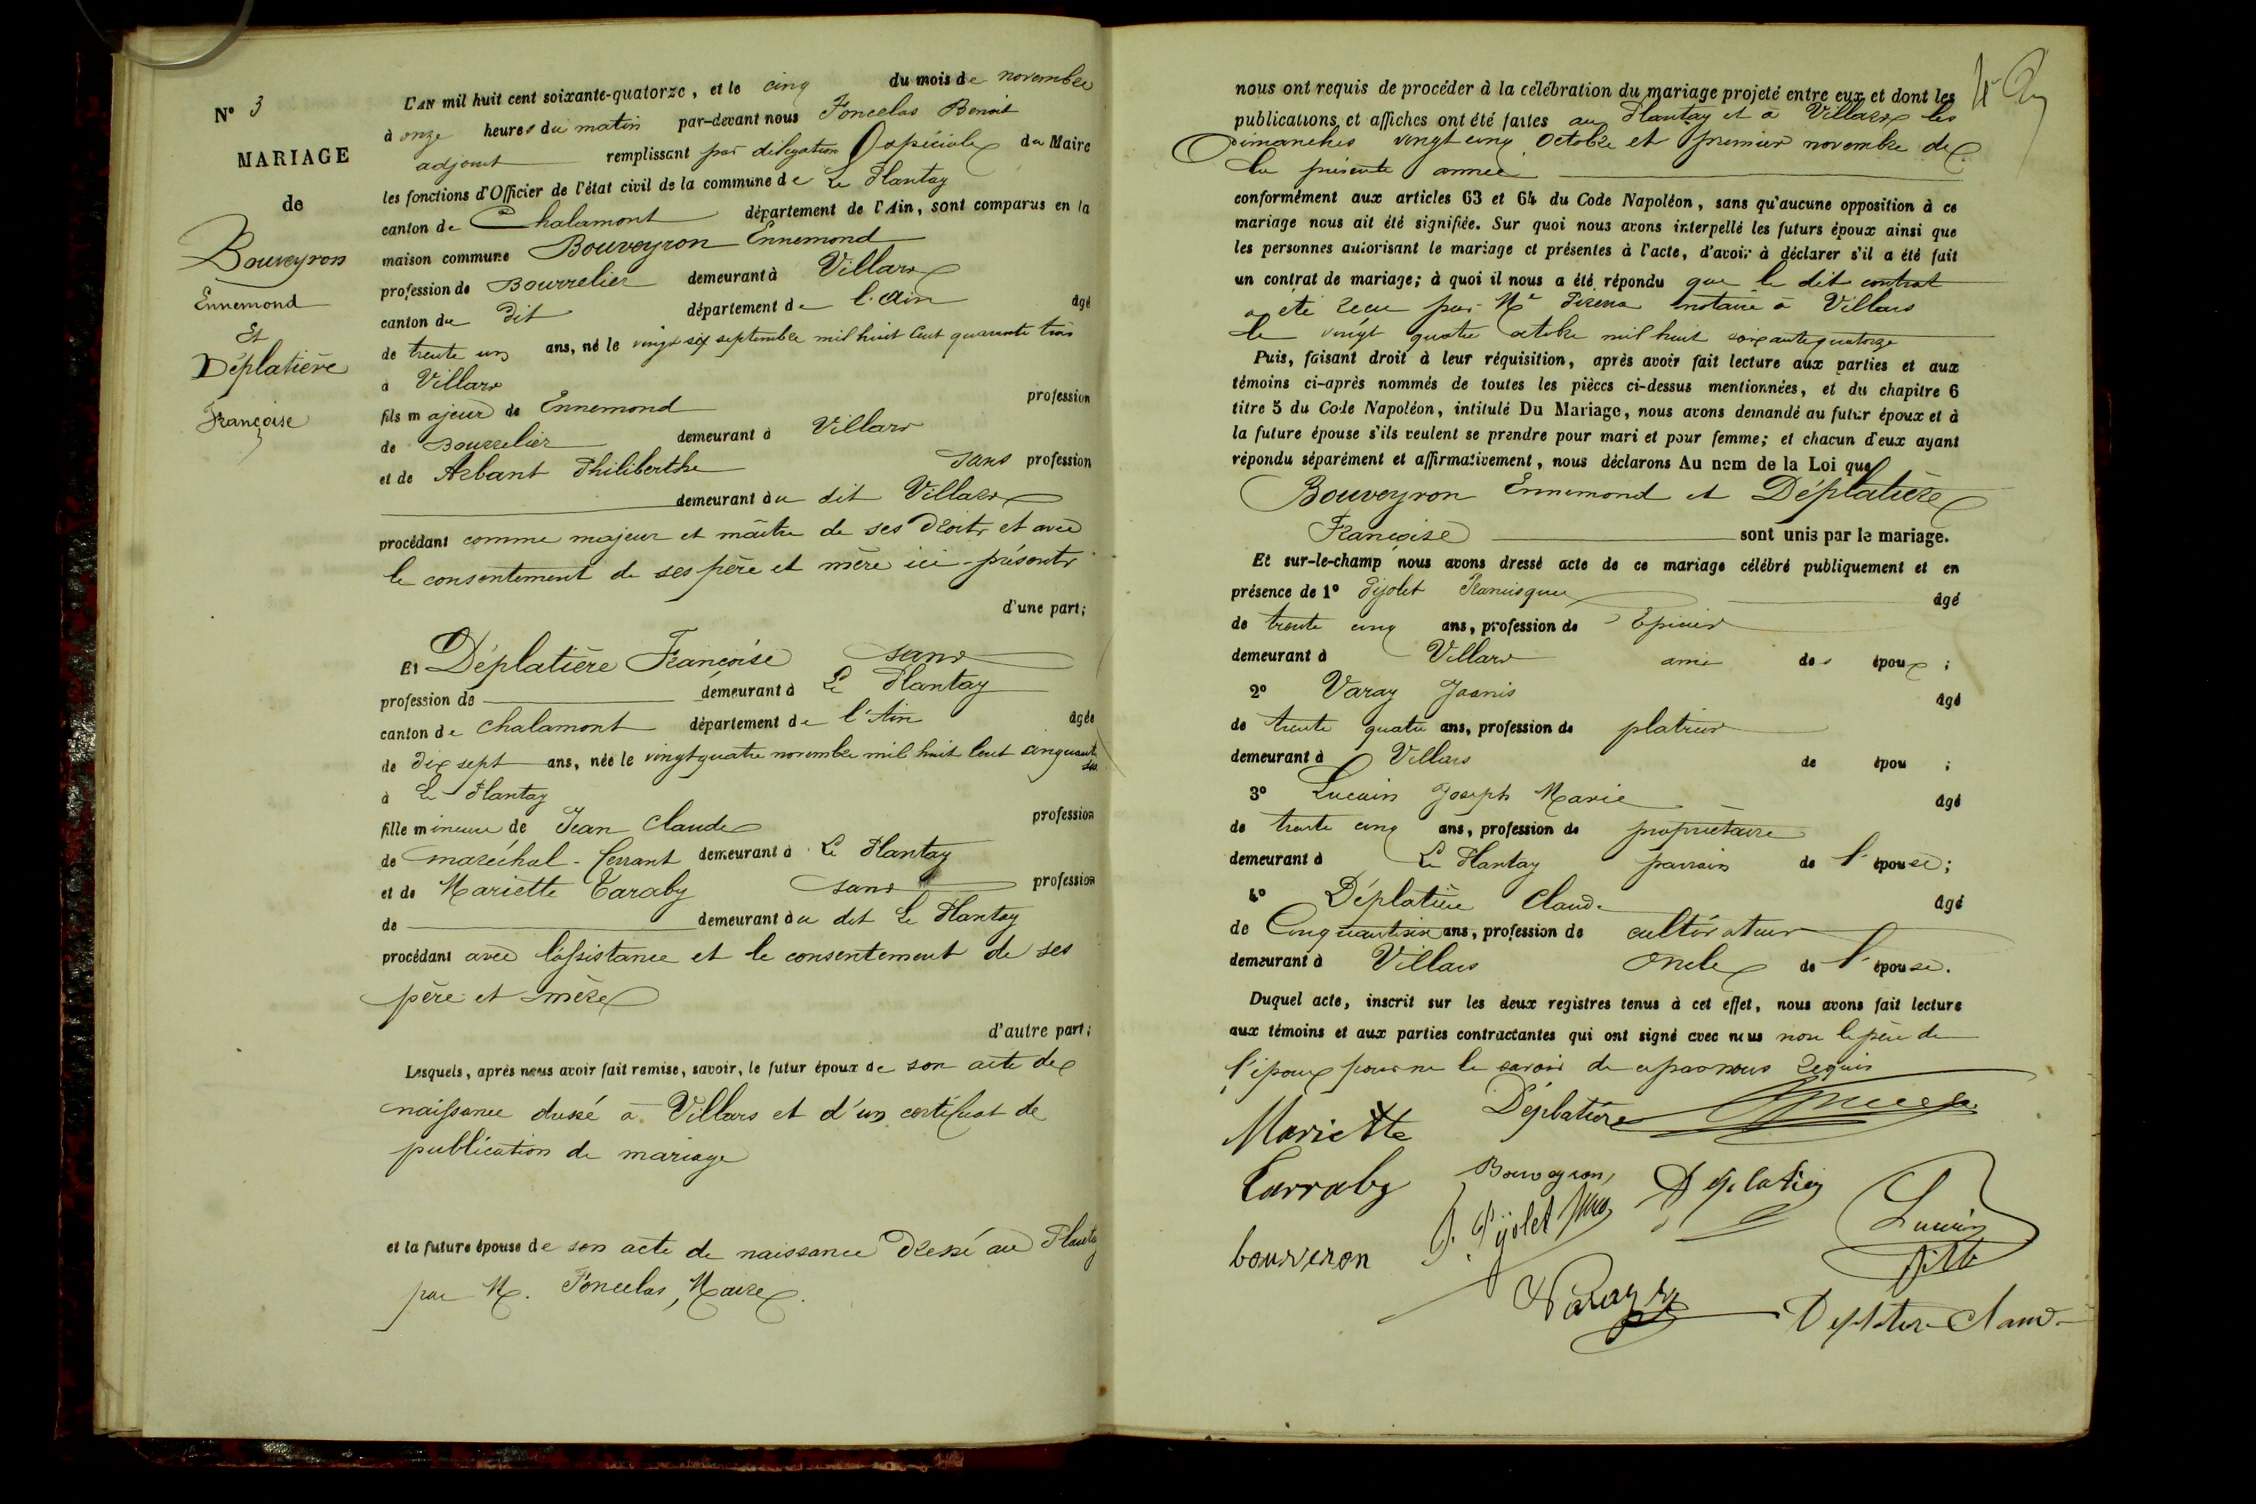 N° 3
MARIAGE
de
Bouveyron
Ennemond
Et
Déplatière
Françoise
L'AN mil huit cent soixante-quatorze, et le cinq du mois de novembre
à onze heures du matin par-devant nous Foncelas Benoit
adjoint remplissant par délégation spéciale du Maire
les fonctions d'Officier de l'état civil de la commune de Le Plantay
canton de Chalamont département de l'Ain, sont comparus en la
maison commune Bouveyron Ennemond
profession de Bourrelier demeurant à Villars
canton du dit département de l'Ain âgé
de trente un ans, né le vingt six septembre mil huit cent quarante trois
à Villars
fils majeur de Ennemond profession
de Bourrelier demeurant à Villars
et de Arbant Philiberthe sans profession
demeurant au dit Villars
procédant comme majeur et maître de ses droits et avec
le consentement de ses père et mère ici-présents
d'une part;
Et Déplatière Françoise sans
profession de demeurant à Le Plantay
canton de Chalamont département de l'Ain âgée
de dix sept ans, née le vingt quatre novembre mil huit cent cinquante
six
à Le Plantay
fille mineure de Jean Claude profession
de maréchal-ferrant demeurant à Le Plantay
et de Mariette Taraby sans profession
de demeurant au dit Le Plantay
procédant avec l'assistance et le consentement de ses
père et mère
d'autre part;
Lesquels, après nous avoir fait remise, savoir, le futur époux de son acte de
naissance dressé à Villars et d'un certificat de
publication de mariage
et la future épouse de son acte de naissance dressé au Plantay
par M. Foncelas, Maire.
nous ont requis de procéder à la célébration du mariage projeté entre eux et dont les
publications et affiches ont été faites au Plantay et à Villars les
Dimanches vingt cinq Octobre et premier novembre de
la présente année
conformément aux articles 63 et 64 du Code Napoléon, sans qu'aucune opposition à ce
mariage nous ait été signifiée. Sur quoi nous avons interpellé les futurs époux ainsi que
les personnes autorisant le mariage et présentes à l'acte, d'avoir à déclarer s'il a été fait
un contrat de mariage; à quoi il nous a été répondu que le dit contrat
a été reçu par Me notaire à Villars
le vingt quatre octobre mil huit soixante quatorze
Puis, faisant droit à leur réquisition, après avoir fait lecture aux parties et aux
témoins ci-après nommés de toutes les pièces ci-dessus mentionnées, et du chapitre 6
titre 5 du Code Napoléon, intitulé Du Mariage, nous avons demandé au futur époux et à
la future épouse s'ils veulent se prendre pour mari et pour femme; et chacun d'eux ayant
répondu séparément et affirmativement, nous déclarons Au nom de la Loi que
Bouveyron Ennemond et Déplatière
Françoise sont unis par le mariage.
Et sur-le-champ nous avons dressé acte de ce mariage célébré publiquement et en
présence de 1° Pijolet Francisque âgé
de trente cinq ans, profession de Epicier
demeurant à Villars ami des époux;
2° Varay Joanis âgé
de trente quatre ans, profession de platrier
demeurant à Villars de épou;
3° Lucain Joseph Marie âgé
de trente cinq ans, profession de propriétaire
demeurant à Le Plantay parrain de l'épouse;
4° Déplatière Claude âgé
de Cinquante six ans, profession de cultivateur
demeurant à Villars Oncle de l'épouse.
Duquel acte, inscrit sur les deux registres tenus à cet effet, nous avons fait lecture
aux témoins et aux parties contractantes qui ont signé avec nous non le père de
l'époux pour ne le savoir de ce par nous requis
Déplatière
Mariette
Carraby
Bouveyron
F. Pijolet
Déplatière
Lucain
bouveron
Varay
Deplatier Claude